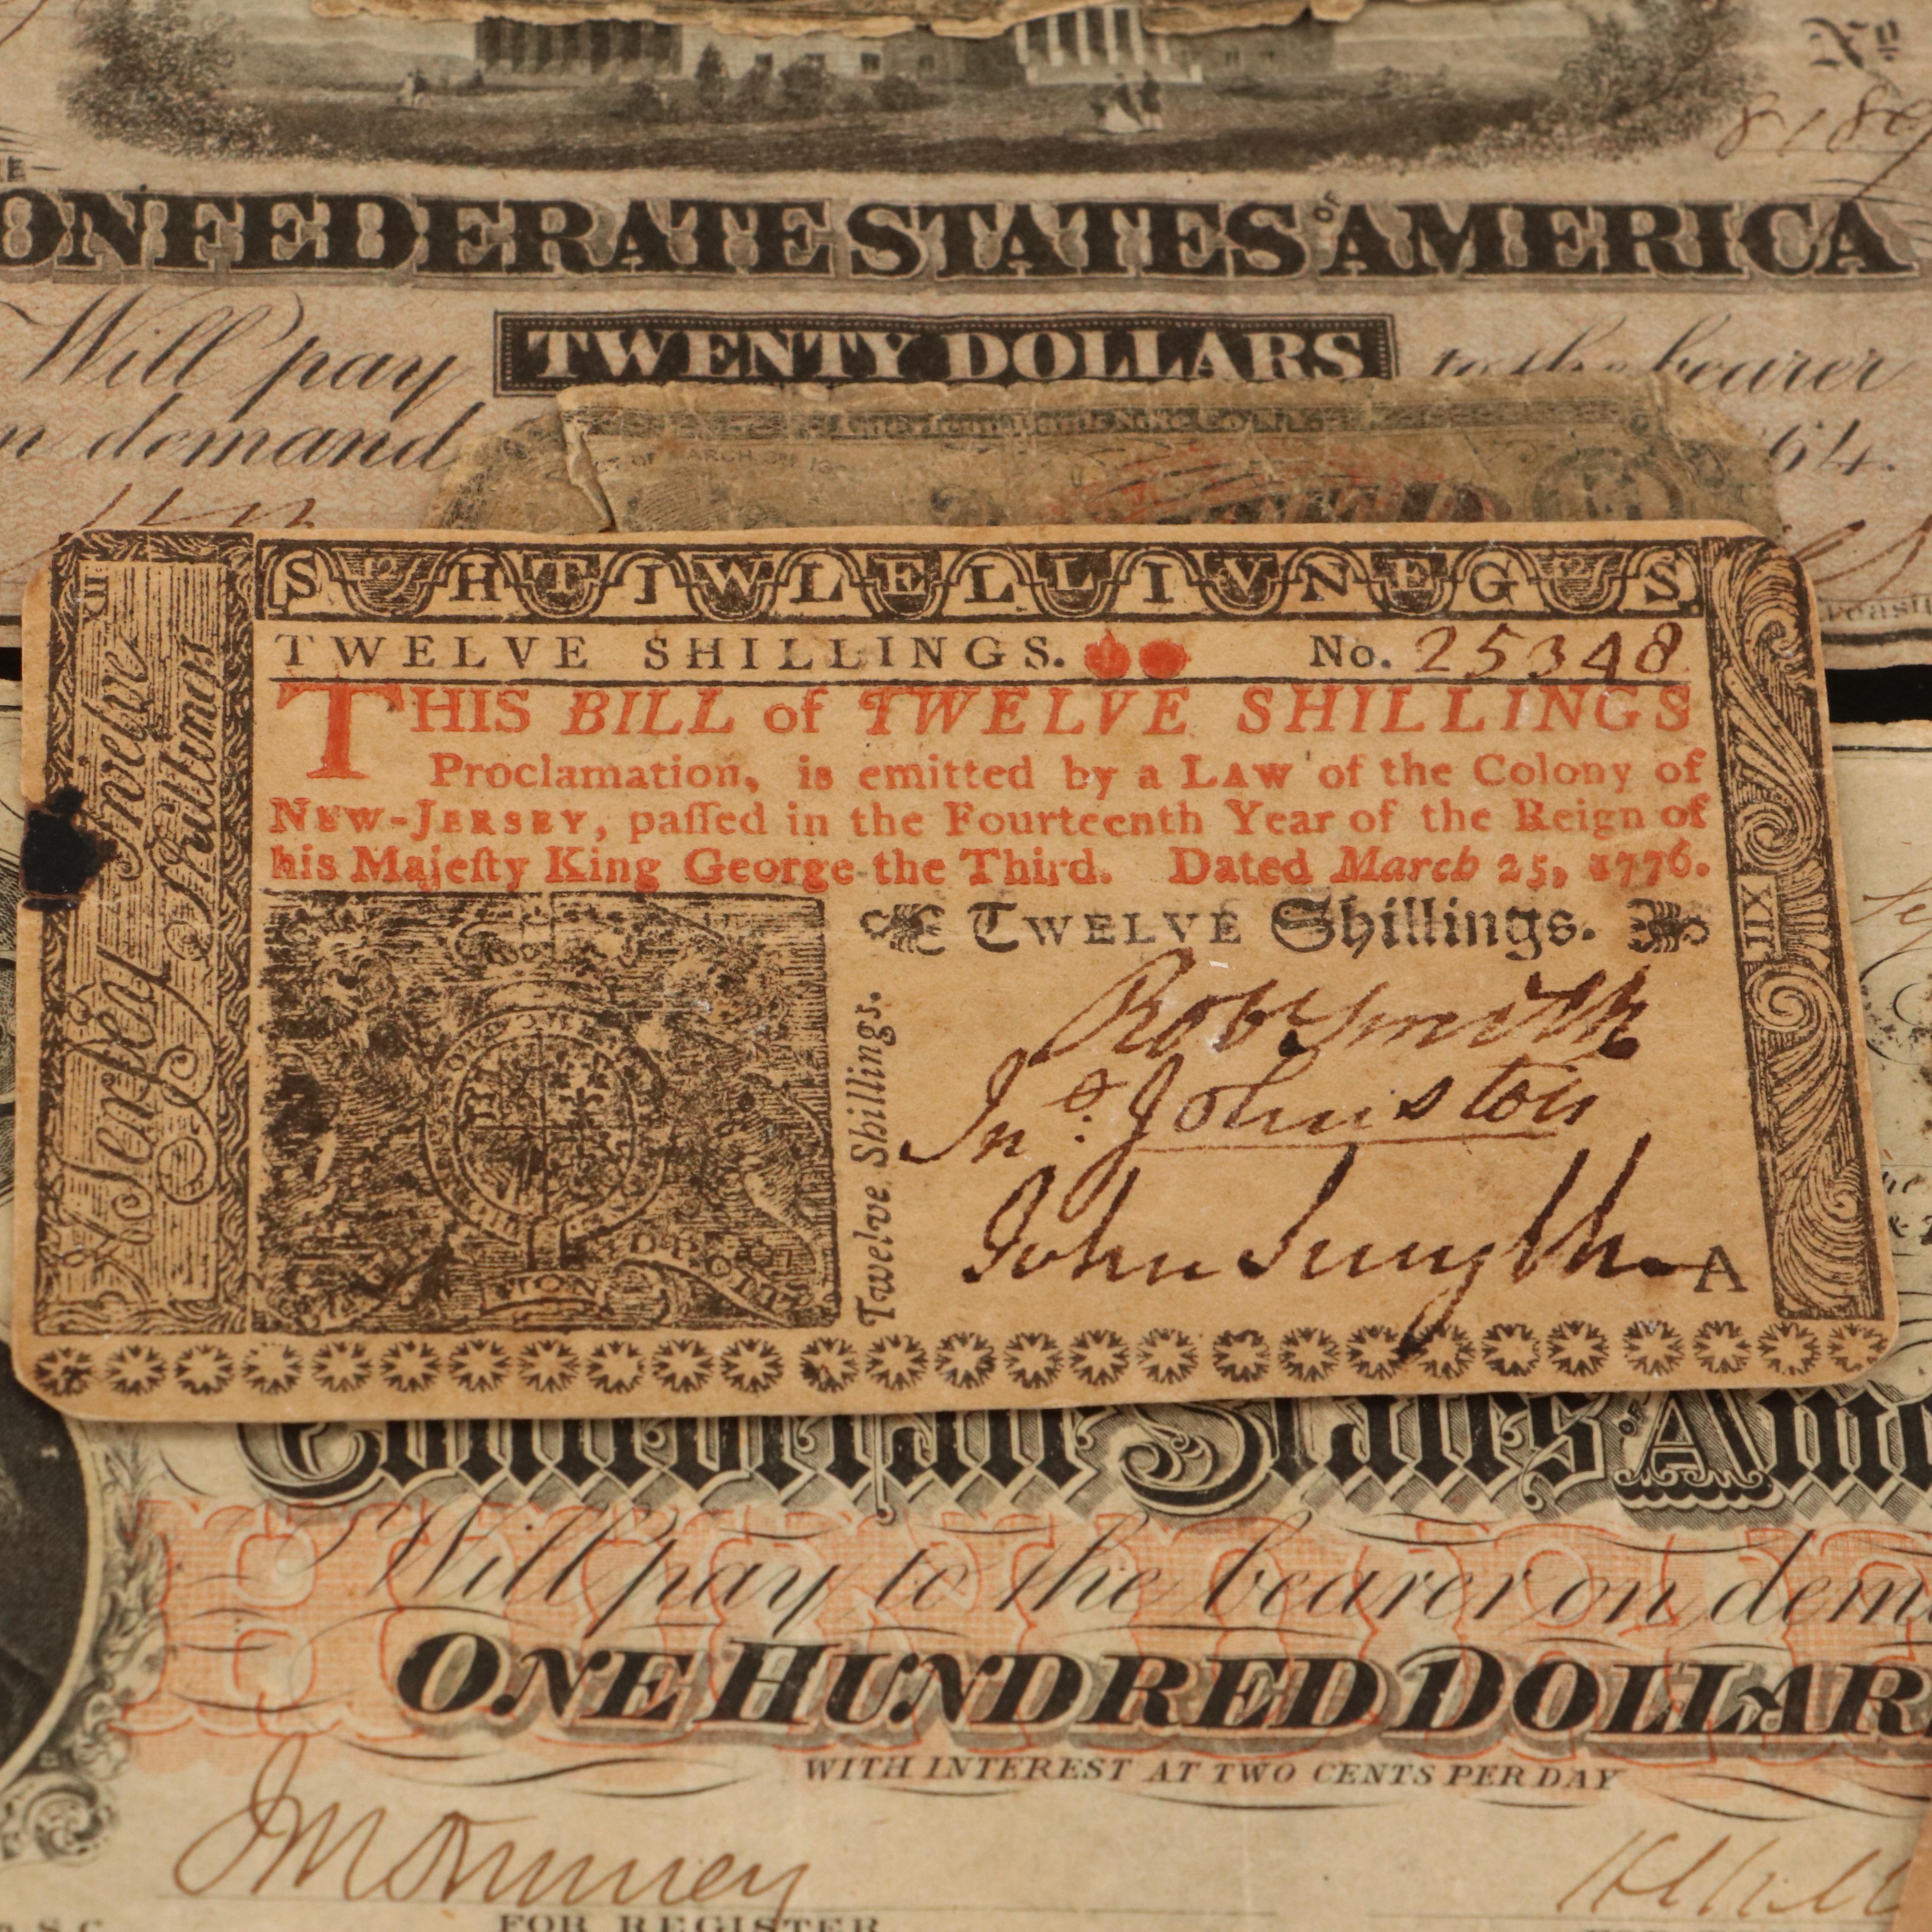 No
8189
CONFEDERATE STATES OF AMERICA
Will pay TWENTY DOLLARS to the bearer
on demand 64.
ACT OF MARCH 3RD
S 12 H T I W L E L L I V N E G 12 S
TWELVE SHILLINGS. No. 25348
THIS BILL of TWELVE SHILLINGS
Proclamation, is emitted by a LAW of the Colony of
NEW-JERSEY, paſſed in the Fourteenth Year of the Reign of
his Majeſty King George the Third. Dated March 25, 1776.
TWELVE Shillings.
Twelve Shillings.
Twelve Shillings
XII
XII
Robt Smith
Jno. Johnston
John Smyth
A
MON
DROIT
Confederate States OF America
Will pay to the bearer on dem
ONE HUNDRED DOLLAR
WITH INTEREST AT TWO CENTS PER DAY
FOR REGISTER